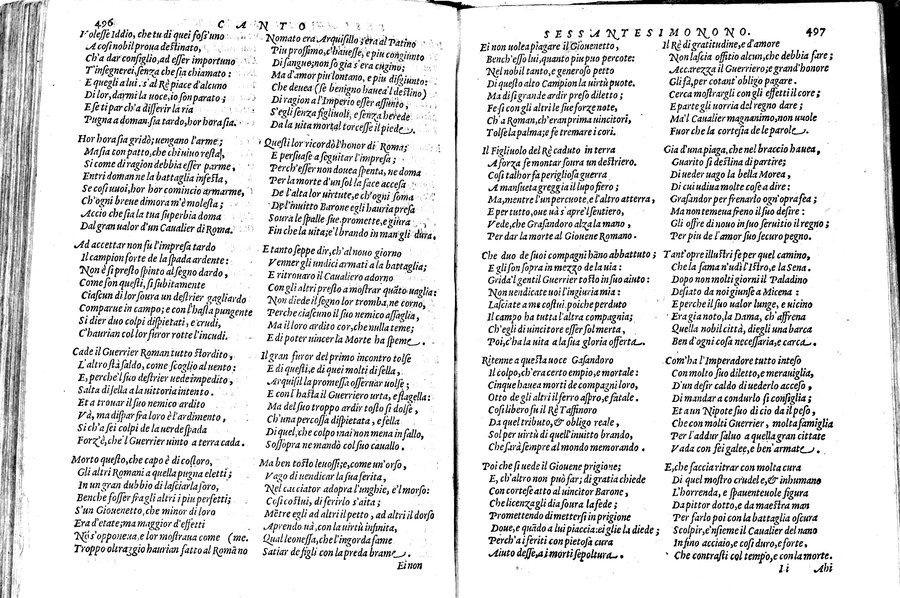 496 CANTO
Volesse Iddio, che tu di quei fosi'uno
A cosi nobil proua destinato,
Ch'a dar consiglio, ad esser importuno
T'insegnerei, senza che sia chiamato:
E quegli a lui. s'al Rè piace d'alcuno
Di lor, darmi la uoce, io son parato;
E se ti par ch'a disferir la ria
Pugna a doman, sia tardo, hor hor sia.
Hor hor sia gridò; uengano l'arme;
Ma sia con patto, che chi uiuo resta,
Si come di ragion debbia esser parme,
Entri doman ne la battaglia infesta,
Se cosi uuoi, hor hor comincio armarme,
Ch'ogni breue dimora m'è molesta;
Accio che sia la tua superbia doma
Dal gran ualor d'un Caualier di Roma.
Ad accettar non fu l'impresa tardo
Il campion forte de la spada ardente:
Non è si presto spinto al segno dardo,
Come son questi, si subitamente
Ciascun di lor soura un destrier gagliardo
Comparue in campo; e con l'hasta pungente
Si dier duo colpi dispietati, e crudi,
C'haurian col lor furor rotte l'incudi.
Cade il Guerrier Roman tutto stordito,
L'altro stà saldo, come scoglio al uento:
E, perche'l suo destrier uede impedito,
Salta di sella a la uittoria intento.
Et a trouar il suo nemico ardito
Và, ma dispar fra loro è l'ardimento,
Si ch'a sei colpi de la uerde spada
Forz'è, che'l Guerrier uinto a terra cada.
Morto questo, che capo è di costoro,
Gli altri Romani a quella pugna eletti;
In un gran dubbio di lasciar la foro,
Benche fosser fra gli altri i piu perfetti;
S'un Giouenetto, che minor di loro
Era d'etate; ma maggior d'effetti
Nò s'opponea, e lor mostraua come (me.
Troppo oltraggio haurian fatto al Romãno
Nomato era Arquisillo; era al Patino
Piu prossimo, c'hauesse, e piu congiunto
Di sangue; non so gia s'era cugino;
Ma d'amor piu lontano, e piu disgiunto:
Che deuea (se benigno hauea'l destino)
Di ragion a l'Imperio esser assunto,
S'egli senza figliuoli, e senza herede
Da la uita mortal torcesse il piede.
Questi lor ricordò l'honor di Roma;
E persuase a seguitar l'impresa;
Perch'esser non douea spenta, ne doma
Per la morte d'un sol la face accesa
De l'alta lor uirtute, e ch'ogni soma
De l'inuitto Baron egli hauria presa
Soura le spalle sue. promette, e giura
Fin che la uita; e'l brando in man gli dura.
E tanto seppe dir, ch'al nouo giorno
Venner gli undici armati a la battaglia;
E ritrouaro il Caualiero adorno
Con gli altri presto a mostrar quãto uaglia:
Non diede il segno lor tromba, ne corno,
Perche ciascuno il suo nemico assaglia,
Ma il loro ardito cor, che nulla teme;
E di poter uincer la Morte ha speme.
Il gran furor del primo incontro tolse
E di questi, e di quei molti di sella,
Arquisil la promessa osseruar uolse;
E con l'hasta il Guerriero urta, e flagella:
Ma del suo troppo ardir tosto si dolse,
Ch'una percossa dispietata, e fella
Di quel, che colpo mai non mena in fallo,
Sossopra ne mandò col suo cauallo.
Ma ben tosto leuossi; e, come un'orso,
Vago di uendicar la sua ferita,
Nel cacciator adopra l'unghie, e'l morso:
Cosi costui, di ferirlo s'aita;
Mẽtre egli ad altri il petto, ad altri il dorso
Aprendo uà, con la uirtù infinita,
Qual leonessa, che l'ingorda fame
Satiar de figli con la preda brame.
Ei non
SESSANTESIMONONO. 497
Ei non uolea piagare il Giouenetto,
Bench'esso lui, quanto piu puo percote:
Nel nobil tanto, e generoso petto
Di questo alto Campion la uirtù puote.
Ma di si grande ardir preso diletto;
Fe sì con gli altri le sue forze note,
Ch'a Roman, ch'eran prima uincitori,
Tolse la palma; e fe tremare i cori.
Il Figliuolo del Rè caduto in terra
A forza fe montar soura un destriero.
Cosi talhor fa perigliosa guerra
A mansueta greggia il lupo fiero;
Ma, mentre l'un percuote, e l'altro atterra,
E per tutto, oue uà s'apre'l sentiero,
Vede, che Grasandoro alza la mano,
Per dar la morte al Giouene Romano.
Che duo de suoi compagni hãno abbattuto;
E gli son sopra in mezzo de la uia:
Grida'l gentil Guerrier tosto in suo aiuto:
Non uendicate uoi l'ingiuria mia:
Lasciate a me costui, poiche perduto
Il campo ha tutta l'altra compagnia;
Ch'egli di uincitore esser sol merta,
Poi, c'ha la uita a la sua gloria offerta.
Ritenne a questa uoce Gasandoro
Il colpo, ch'era certo empio, e mortale:
Cinque hauea morti de compagni loro,
Otto de gli altri il ferro aspro, e fatale.
Cosi libero fu il Rè Taffinoro
Da quel tributo, & obligo reale,
Sol per uirtù di quell'inuitto brando,
Che sarà sempre al mondo memorando.
Poi che si uede il Giouene prigione;
E, ch'altro non può far; di gratia chiede
Con cortese atto al uincitor Barone,
Che licenza gli dia soura la fede;
Promettendo di mettersi in prigione
Doue, e quãdo a lui piaccia: ei glie la diede;
Perch'a i feriti con pietosa cura
Aiuto desse, a i morti sepoltura.
Il Rè di gratitudine, e d'amore
Non lascia offitio alcun, che debbia fare;
Accarezza il Guerriero; e grand'honore
Gli fà, per cotant'obligo pagare.
Cerca mostrargli con gli effetti il core;
E parte gli uorria del regno dare;
Ma'l Caualier magnanimo, non uuole
Fuor che la cortesia de le parole.
Gia d'una piaga, che nel braccio hauea,
Guarito si destina di partire;
Di ueder uago la bella Morea,
Di cui udiua molte cose a dire:
Grasandor per frenarlo ogn'opra fea;
Ma non temeua freno il suo desire:
Gli offre di nouo in suo seruitio il regno;
Per piu de l'amor suo securo pegno.
Tant'opre illustri fe per quel camino,
Che la fama n'udì l'Istro, e la Sena.
Dopo non molti giorni il Paladino
Desiato da noi giunse a Micena:
E perche il suo ualor lunge, e uicino
Era gia noto, la Dama, ch'affrena
Quella nobil città, diegli una barca
Ben d'ogni cosa necessaria, e carca.
Com'ha l'Imperadore tutto inteso
Con molto suo diletto, e merauiglia,
D'un desir caldo di uederlo acceso,
Di mandar a condurlo si consiglia;
Et a un Nipote suo di cio da il peso,
Che con molti Guerrier, molta famiglia
Per l'addur saluo a quella gran cittate
Vada con sei galee, e ben'armate.
E, che faccia ritrar con molta cura
Di quel mostro crudele, & inhumano
L'horrenda, e spauenteuole figura
Da pittor dotto, e da maestra man
Per farlo poi con la battaglia oscura
Scolpir, e'nsieme il Caualier del nano
In fino acciaio, e cosi duro, e forte,
Che contrasti col tempo, e con la morte.
Ii Ahi